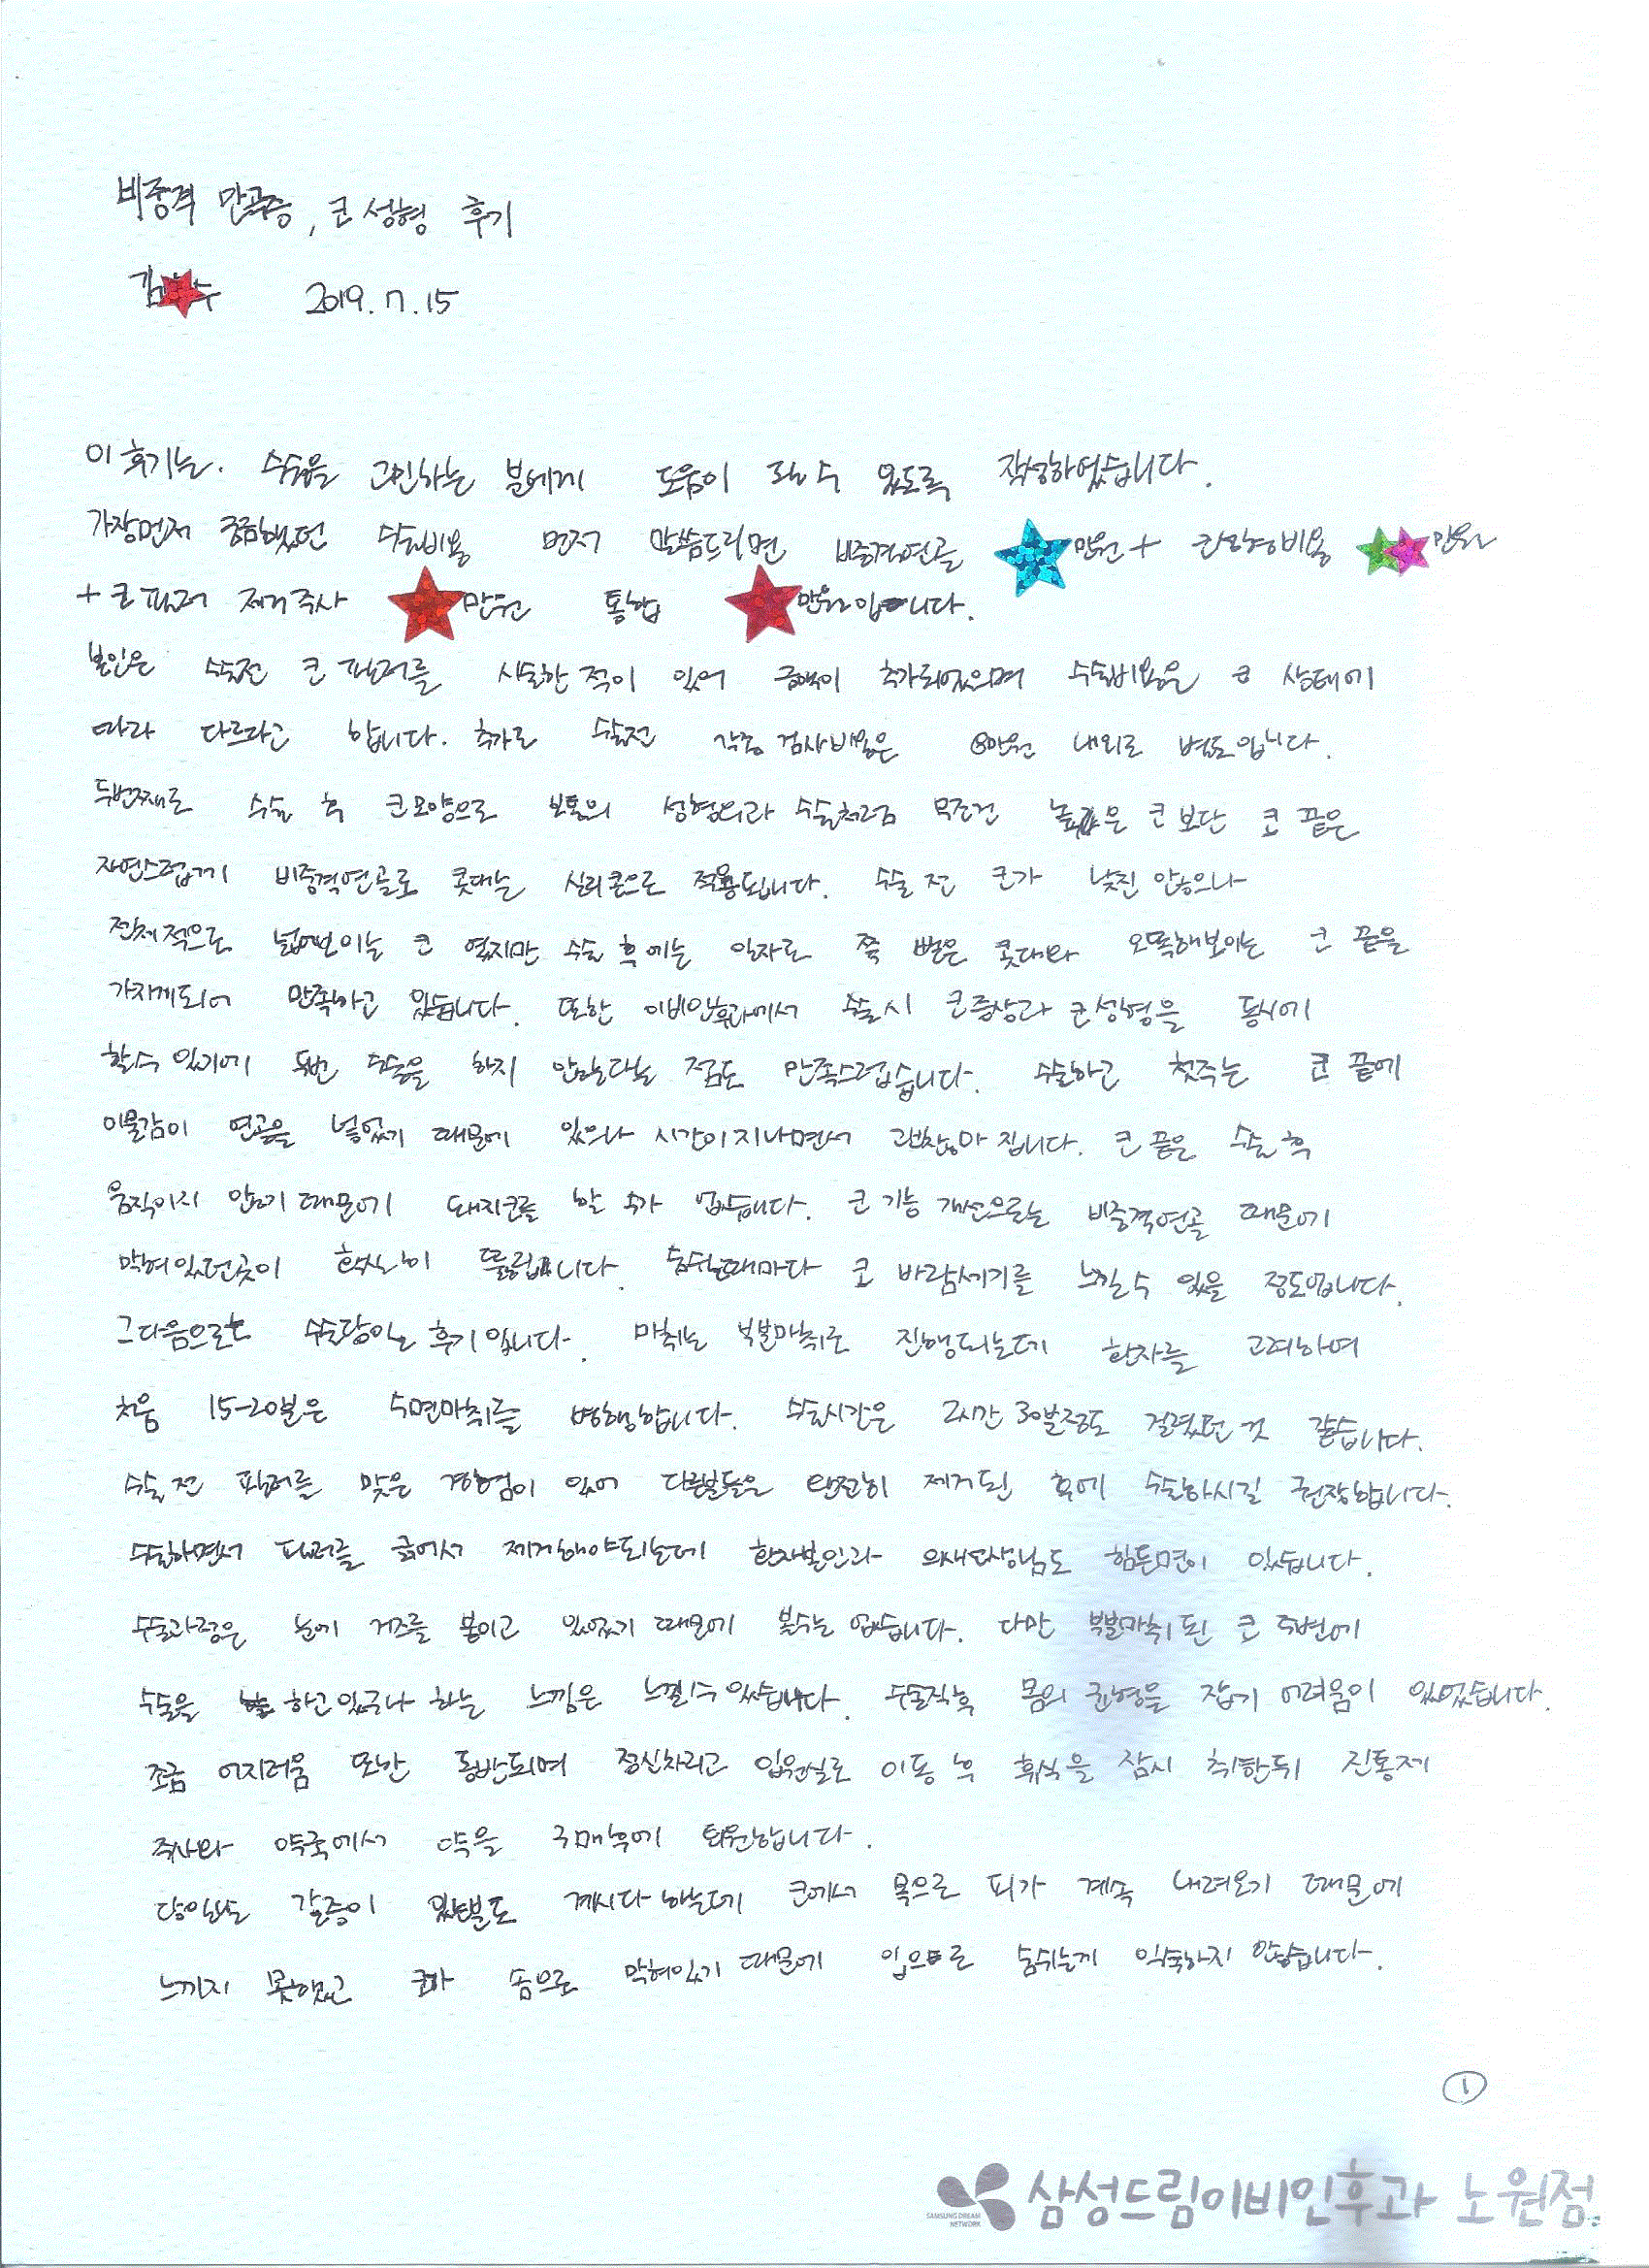 비중격 만곡증, 코 성형 후기
김 수 2019.7.15
이 후기는. 수술을 고민하는 분에게 도움이 될 수 있도록 작성하였습니다.
가장먼저 궁금했던 수술비용 먼저 말씀드리면 비중격연골 만원 + 코성형비용 만원
+ 코 필러 제거주사 만원 통합 만원입니다.
본인은 수술전 코 필러를 시술한 적이 있어 금액이 추가되었으며 수술비용은 코 상태에
따라 다르다고 합니다. 추가로 수술전 각종 검사비용은 만원 내외로 별도입니다.
두번째로 수술 후 코모양으로 보통의 성형외과 수술처럼 무조건 높은 코 보단 코 끝은
자연스럽게 비중격연골로 콧대는 실리콘으로 적용됩니다. 수술 전 코가 낮진 않으나
전체적으로 넓어보이는 코 였지만 수술 후에는 일자로 쭉 뻗은 콧대와 오똑해보이는 코 끝을
가지게되어 만족하고 있습니다. 또한 이비인후과에서 수술시 코증상과 코성형을 동시에
할수있기에 두번 수술을 하지 않는다는 점도 만족스럽습니다. 수술하고 첫주는 코 끝에
이물감이 연골을 넣었기 때문에 있으나 시간이지나면서 괜찮아 집니다. 코 끝은 수술 후
움직이지 않기 때문에 돼지코를 할 수가 없습니다. 코 기능 개선으로는 비중격연골 때문에
막혀있던곳이 확실히 뚫립니다. 숨쉬는때마다 코 바람세기를 느낄수 있을 정도입니다.
그다음으로는 수술당일 후기입니다. 마취는 부분마취로 진행되는데 환자를 고려하여
처음 15-20분은 수면마취를 병행합니다. 수술시간은 2시간 30분정도 걸렸던 것 같습니다.
수술 전 필러를 맞은 경험이 있어 다른분들은 완전히 제거된 후에 수술하시길 권장합니다.
수술하면서 필러를 긁어서 제거해야되는데 환자본인과 의사선생님도 힘든면이 있습니다.
수술과정은 눈에 거즈를 붙이고 있었기 때문에 볼수는 없습니다. 다만 부분마취 된 코 주변에
수술을 하고있구나 하는 느낌은 느낄수있습니다. 수술직후 몸의 균형을 잡기 어려움이 있었습니다.
조금 어지러움 또한 동반되며 정신차리고 입원실로 이동 후 휴식을 잠시 취한뒤 진통제
주사와 약국에서 약을 구매후에 퇴원합니다.
당일날 갈증이 있는분도 계시다 하는데 코에서 목으로 피가 계속 내려오기 때문에
느끼지 못했고 코가 솜으로 막혀있기 때문에 입으로 숨쉬는게 익숙하지 않습니다.
①
SAMSUNG DREAM NETWORK
삼성드림이비인후과 노원점